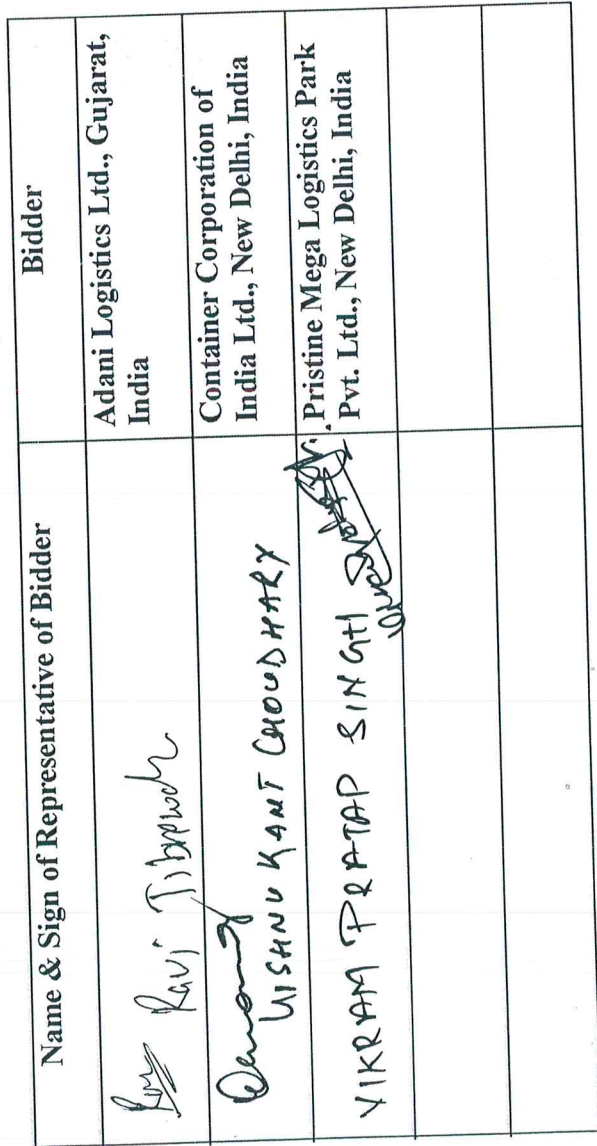 Name & Sign of Representative of Bidder
Bidder
Ravi
Adani Logistics Ltd., Gujarat,
India
VISHNU KANT CHOUDHARY
Container Corporation of
India Ltd., New Delhi, India
VIKRAM PRATAP SINGH
Pristine Mega Logistics Park
Pvt. Ltd., New Delhi, India